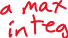 a max
integ